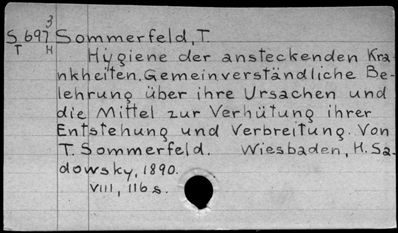 3
S 697 Sommerfeld, T.
T H Hygiene der ansteckenden Kra-
nkheiten. Gemeinverständliche Be-
lehrung über ihre Ursachen und
die Mittel zur Verhütung ihrer
Entstehung und Verbreitung. Von
T. Sommerfeld. Wiesbaden, H. Sa-
dowsky, 1890.
VIII, 116 s.